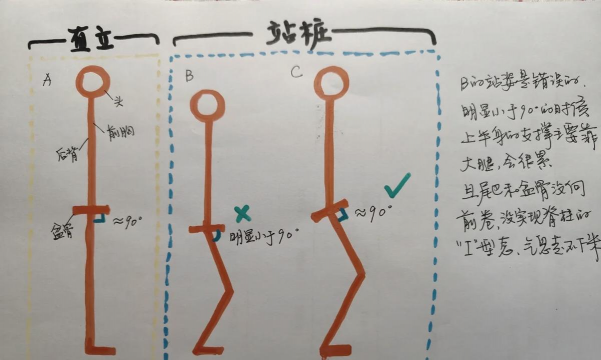 直立
站桩
A
B
C
头
前胸
后背
盆骨
≈90°
明显小于90°
≈90°
B的站姿是错误的,
明显小于90°的时候
上半身的支撑主要靠
大腿,会很累
且尾巴和盆骨没向
前卷,没实现脊柱的
"I"型态,气息走不下来